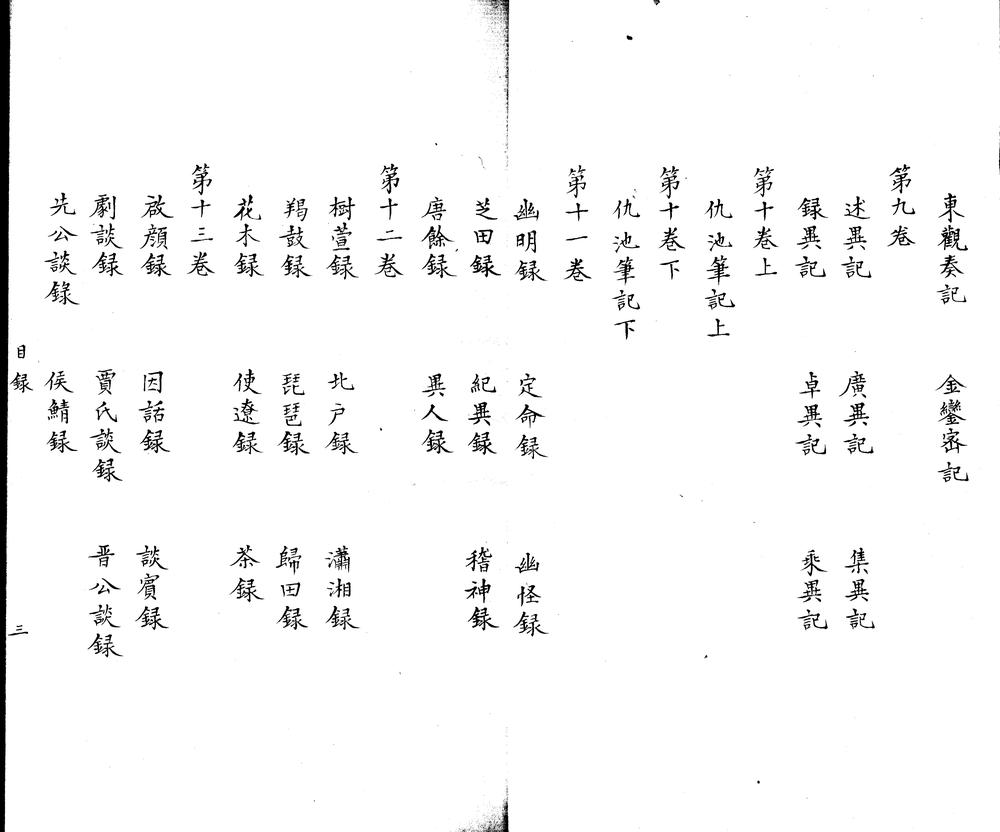 東觀奏記　金鑾密記
第九卷
述異記　廣異記　集異記
録異記　卓異記　乘異記
第十卷上
仇池筆記上
第十卷下
仇池筆記下
第十一卷
幽明録　定命録　幽怪録
芝田録　紀異録　稽神録
唐餘録　異人録
第十二卷
樹萱録　北户録　瀟湘録
羯鼓録　琵琶録　歸田録
花木録　使遼録　茶録
第十三卷
啟顔録　因話録　談賓録
劇談録　賈氏談録　晋公談録
先公談録　侯鯖録
目録　三